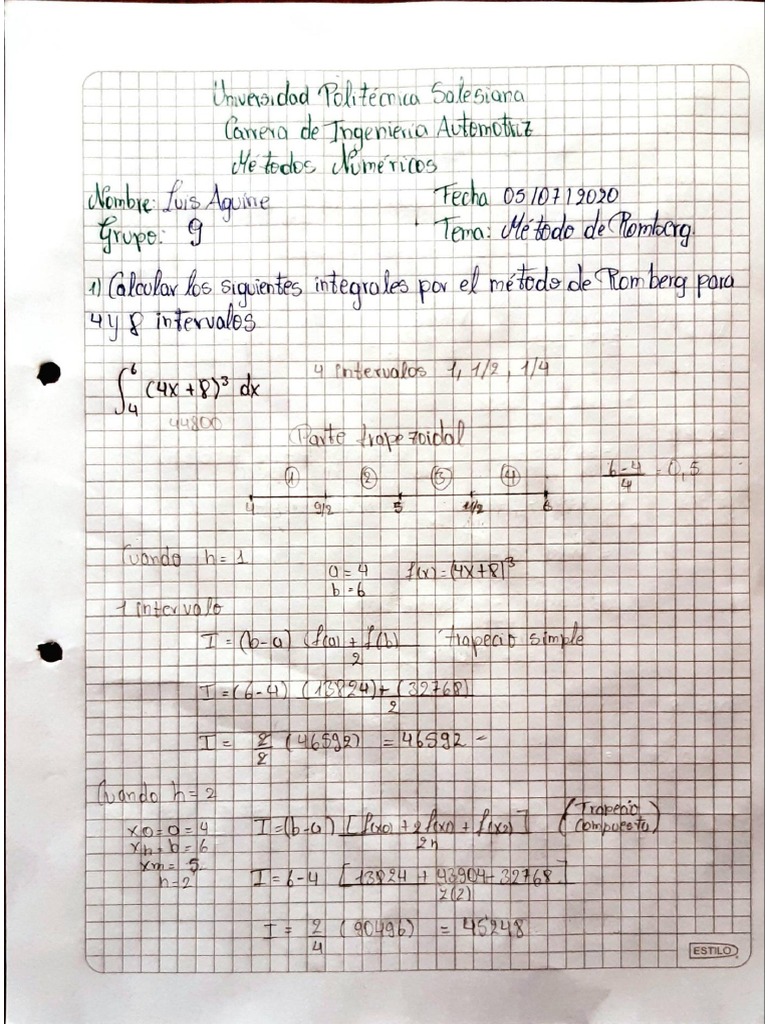 Universidad Politécnica Salesiana
Carrera de Ingenieria Automotriz
Métodos Numéricos
Nombre: Luis Aguirre Fecha 05/07/2020
Grupo: 9 Tema: Método de Romberg.
1) Calcular los siguientes integrales por el método de Romberg para
4 y 8 intervalos
∫₄⁶ (4x+8)³ dx 4 intervalos 1, 1/2, 1/4
44800
Parte trapezoidal
① ② ③ ④ 6-4/4 = 0,5
4 9/2 5 11/2 6
Cuando h=1 a=4 f(x)=(4x+8)³
b=6
1 intervalo
I=(b-a) (f(a)+f(b))/2 trapecio simple
I=(6-4) (13824)+(32768)/2
I= 2/2 (46592) = 46592
Cuando h=2
x0=a=4 I=(b-a) [f(x0)+2f(x1)+f(x2)]/2n (Trapecio Compuesto)
xn=b=6
xm=5
n=2 I=6-4 [13824+43904+32768]/2(2)
I= 2/4 (90496) = 45248
ESTILO